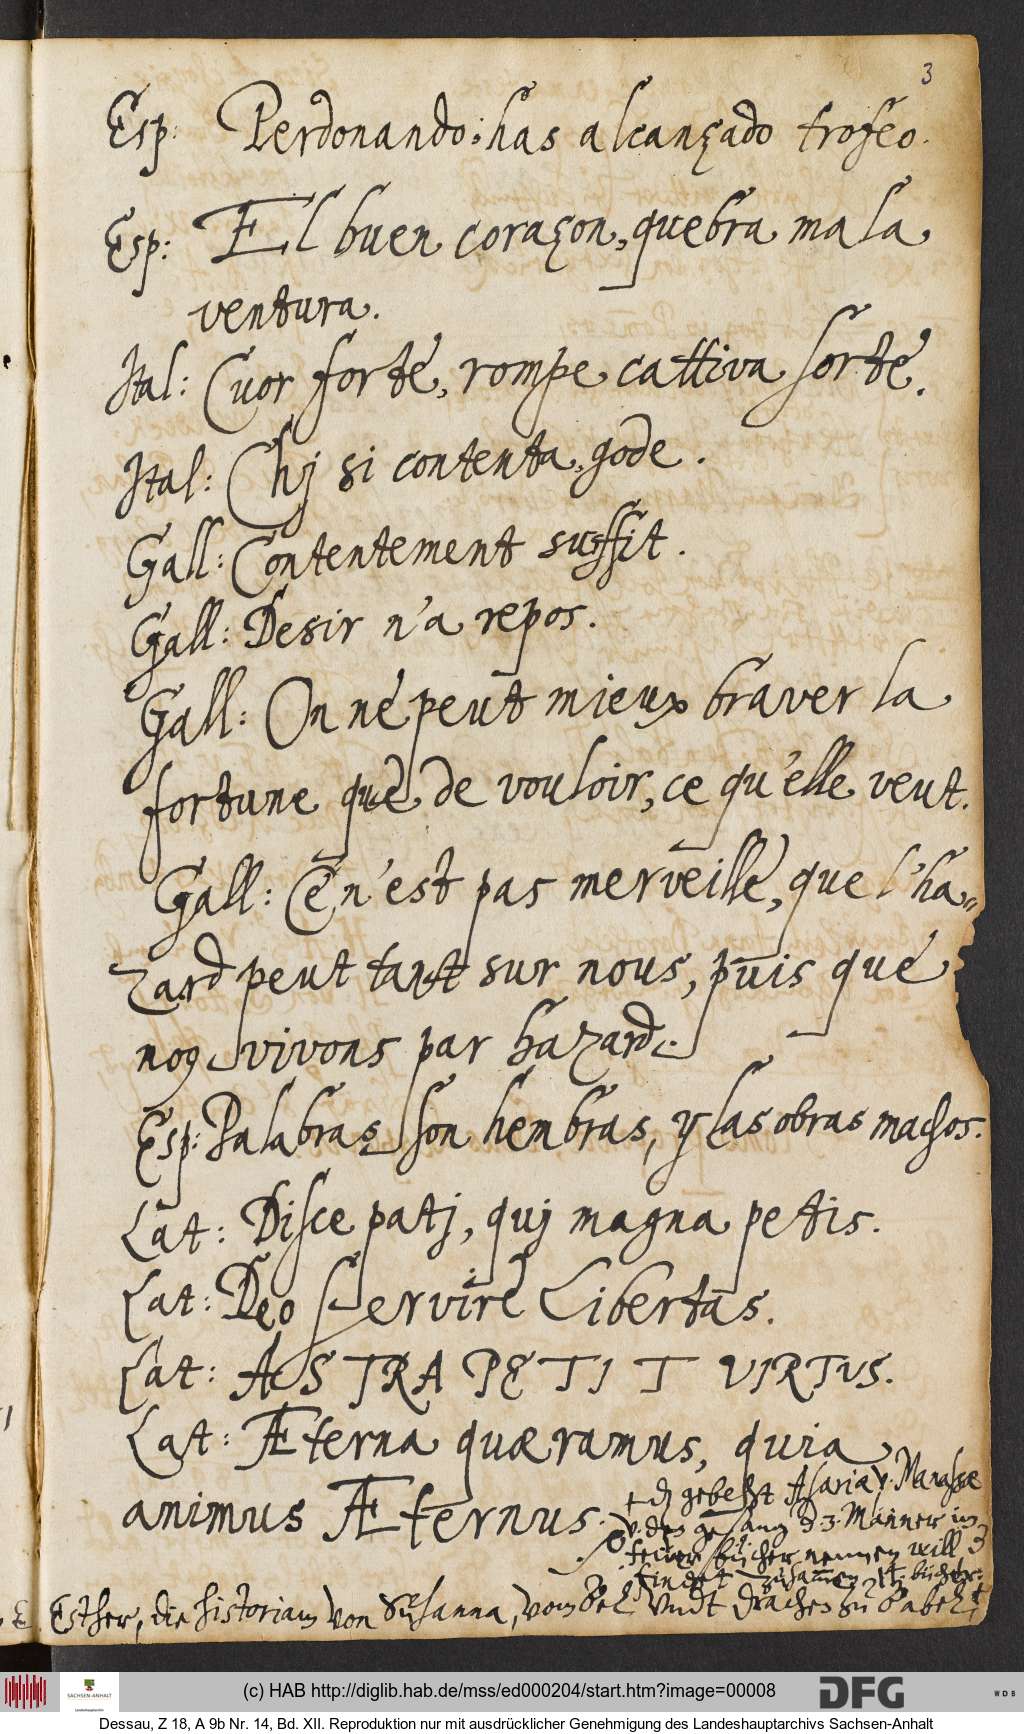 3
Esp: Perdonando: has alcançado trofeo.
Esp: El buen coraçon, quebra mala
ventura.
Ital: Cuor forte, rompe cattiva sorte.
Ital: Chj si contenta, gode.
Gall: Contentement suffit.
Gall: Desir n'a repos.
Gall: On ne peut mieux braver la
fortune que de vouloir, ce qu'elle veut.
Gall: Ce n'est pas merveille, que l'ha-
zard peut tant sur nous, puis que
no9 vivons par hazard.
Esp: Palabras son hembras, y las obras machos.
Lat: Disce patj, quj magna petis.
Lat: Deo servire Libertas.
Lat: ASTRA PETIT VIRTVS.
Lat: Æterna quæramus, quia
animus Æternus.
gebett Asariæ v. Manasse
v. des gesang d 3. Männer im
feuer bücher nennen will
findet zusamen 14. bücher.
Esther, die historiam von Susanna, vom Bel vndt drachen zu Babel
(c) HAB http://diglib.hab.de/mss/ed000204/start.htm?image=00008
SACHSEN-ANHALT
Landeshauptarchiv
DFG
WDB
Dessau, Z 18, A 9b Nr. 14, Bd. XII. Reproduktion nur mit ausdrücklicher Genehmigung des Landeshauptarchivs Sachsen-Anhalt